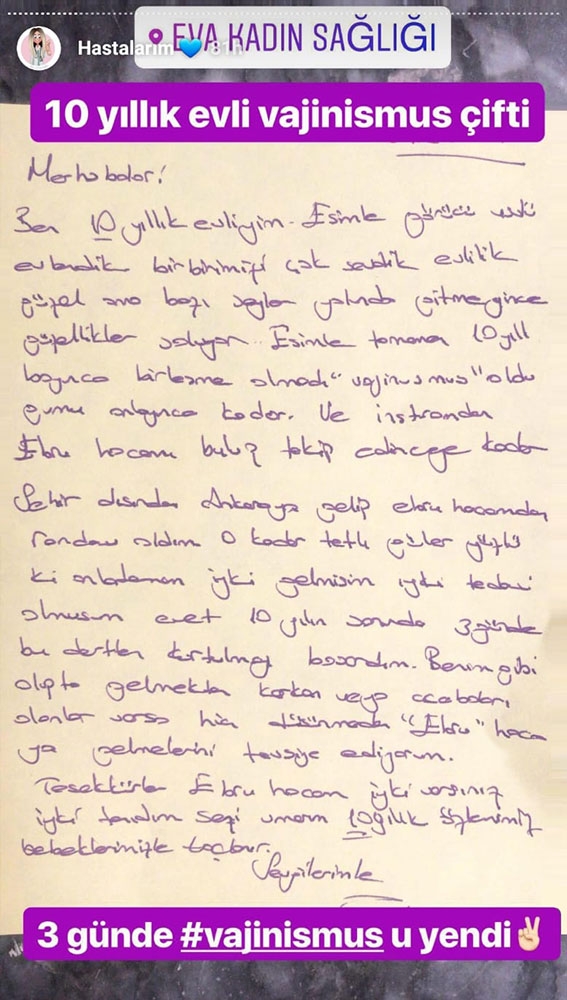 EVA KADIN SAĞLIĞI
Hastalarım 81h
10 yıllık evli vajinismus çifti
Merhabalar!
Ben 10 yıllık evliyim. Esimle görücü usulü
evlendik birbirimizi çok sevdik evlilik
güzel ama bazı seyler yolunda gitmeyince
güzellikler soluyor.. Esimle tamamen 10 yıll
boyunca birlesme olmadı "vajinusmus" oldu
gumu anlayınca kadar. Ve instramdan
Ebru hocamı bulup takip edinceye kadar
Sehir dısından Ankaraya gelip ebru hocamdan
randevu aldım o kadar tatlı güler yüzlü
ki anlatamam iyki gelmisim iyki tedavi
olmusum evet 10 yılın sonunda 3 günde
bu dertten kurtulmayı basardım. Benim gibi
olupta gelmekten korkan veya acabaları
olanlar varsa hiç düsünmeden "Ebru" hoca
ya gelmelerini tavsiye ediyorum.
Tesekkürler Ebru hocam iyki varsınız
iyki tanıdım sizi umarım 10 yıllık özlemimiz
bebeklerimizle taçlanır.
Sevgilerimle
3 günde #vajinismus u yendi✌🏻